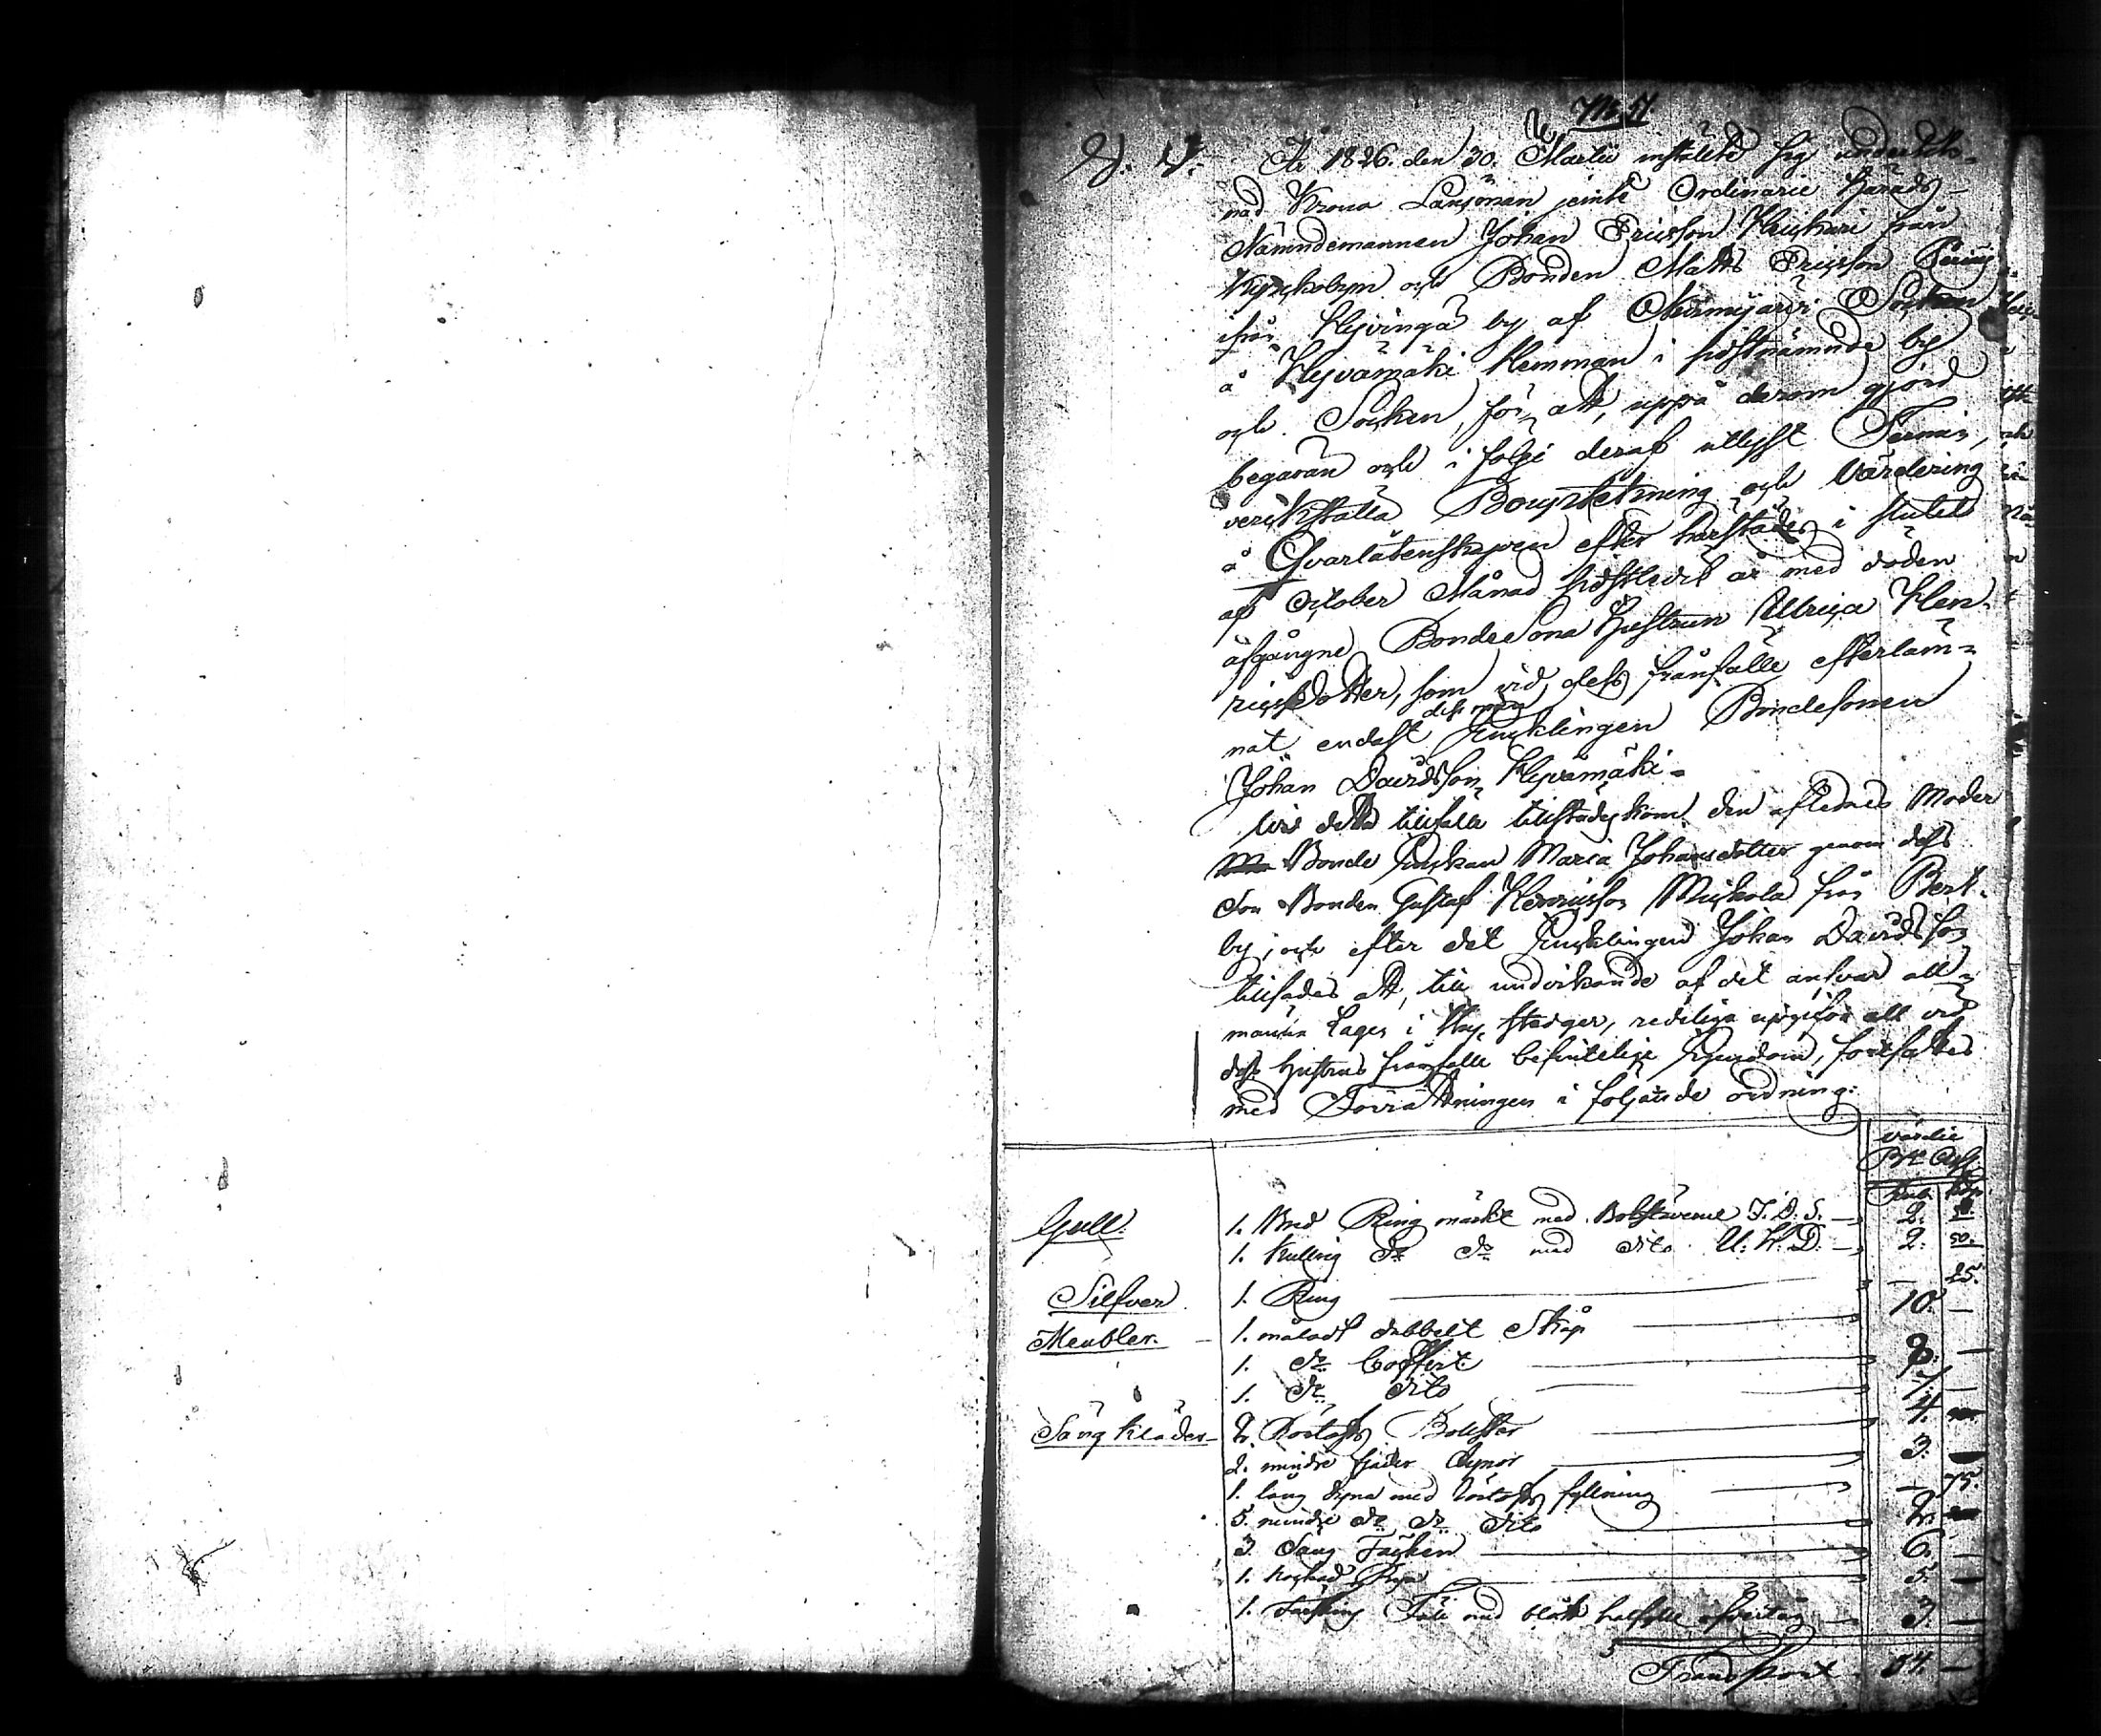 No 51.
År 1826. den 30. Martii instälte sig underteck-
nad Krono Länsman jemte Ordinarie Härads-
Nämndemannen Johan Ericsson Heickari från
Kyrkobyn och Bonden Matts Ericsson
ifrån Hyvinga by af Nurmijärvi Socken
å Hyvämäki Hemman i sistnämnde by
och Socken, för att, uppå derom gjord
begäran och i följe deraf utlyst Termin,
verckställa Bouptekning och Värdering
å Qvarlåtenskapen efter härstädes i slutet
af October Månad sidstledit år med döden
afgångne BondeSona Hustrun Ullrica Hen-
ricsDotter, som vid dess frånfälle efterläm-
nat endast dess man Enklingen Bondesonen
Johan Davidsson Hyvämäki.
Vid detta tillfälle tillstädeskom den aflednes Moder
Bonde Enckan Maria Johansdotter genom dess
Son Bonden Gustaf Henricsson Muckola från Berk-
by, och efter det Encklingen Johan Davidsson
tillsades att, till undvikande af det answar all-
männa Lagen i thy stadgar, redeliga uppgifva all vid
dess Hustrus frånfälle befintelige Egendom, fortfaltes
med Förrättningen i följande ordning:
värdie
Rub. Kop.
Gull. 1. Bred Ring märkt med Bokstäverne J. D. S. 2. 50.
1. Kullrig Do Do med dito U. H. D. 2. 50.
Silfver 1. Ring — 25.
Meubler. 1. måladt dubbelt Skåp 10. —
1. Do Coffert 8. —
1. Do dito 7. —
Sängkläder 2. Bolster 4. —
2. mindre fjäder Dynor 3. —
1. lång dyna med fyllning — 75.
5. mindre Do Do Dito 2. —
3. Säng Täcken 6. —
1. Rya 5. —
1. Fäll med blått öfvertåg 3. —
Transport 54. —